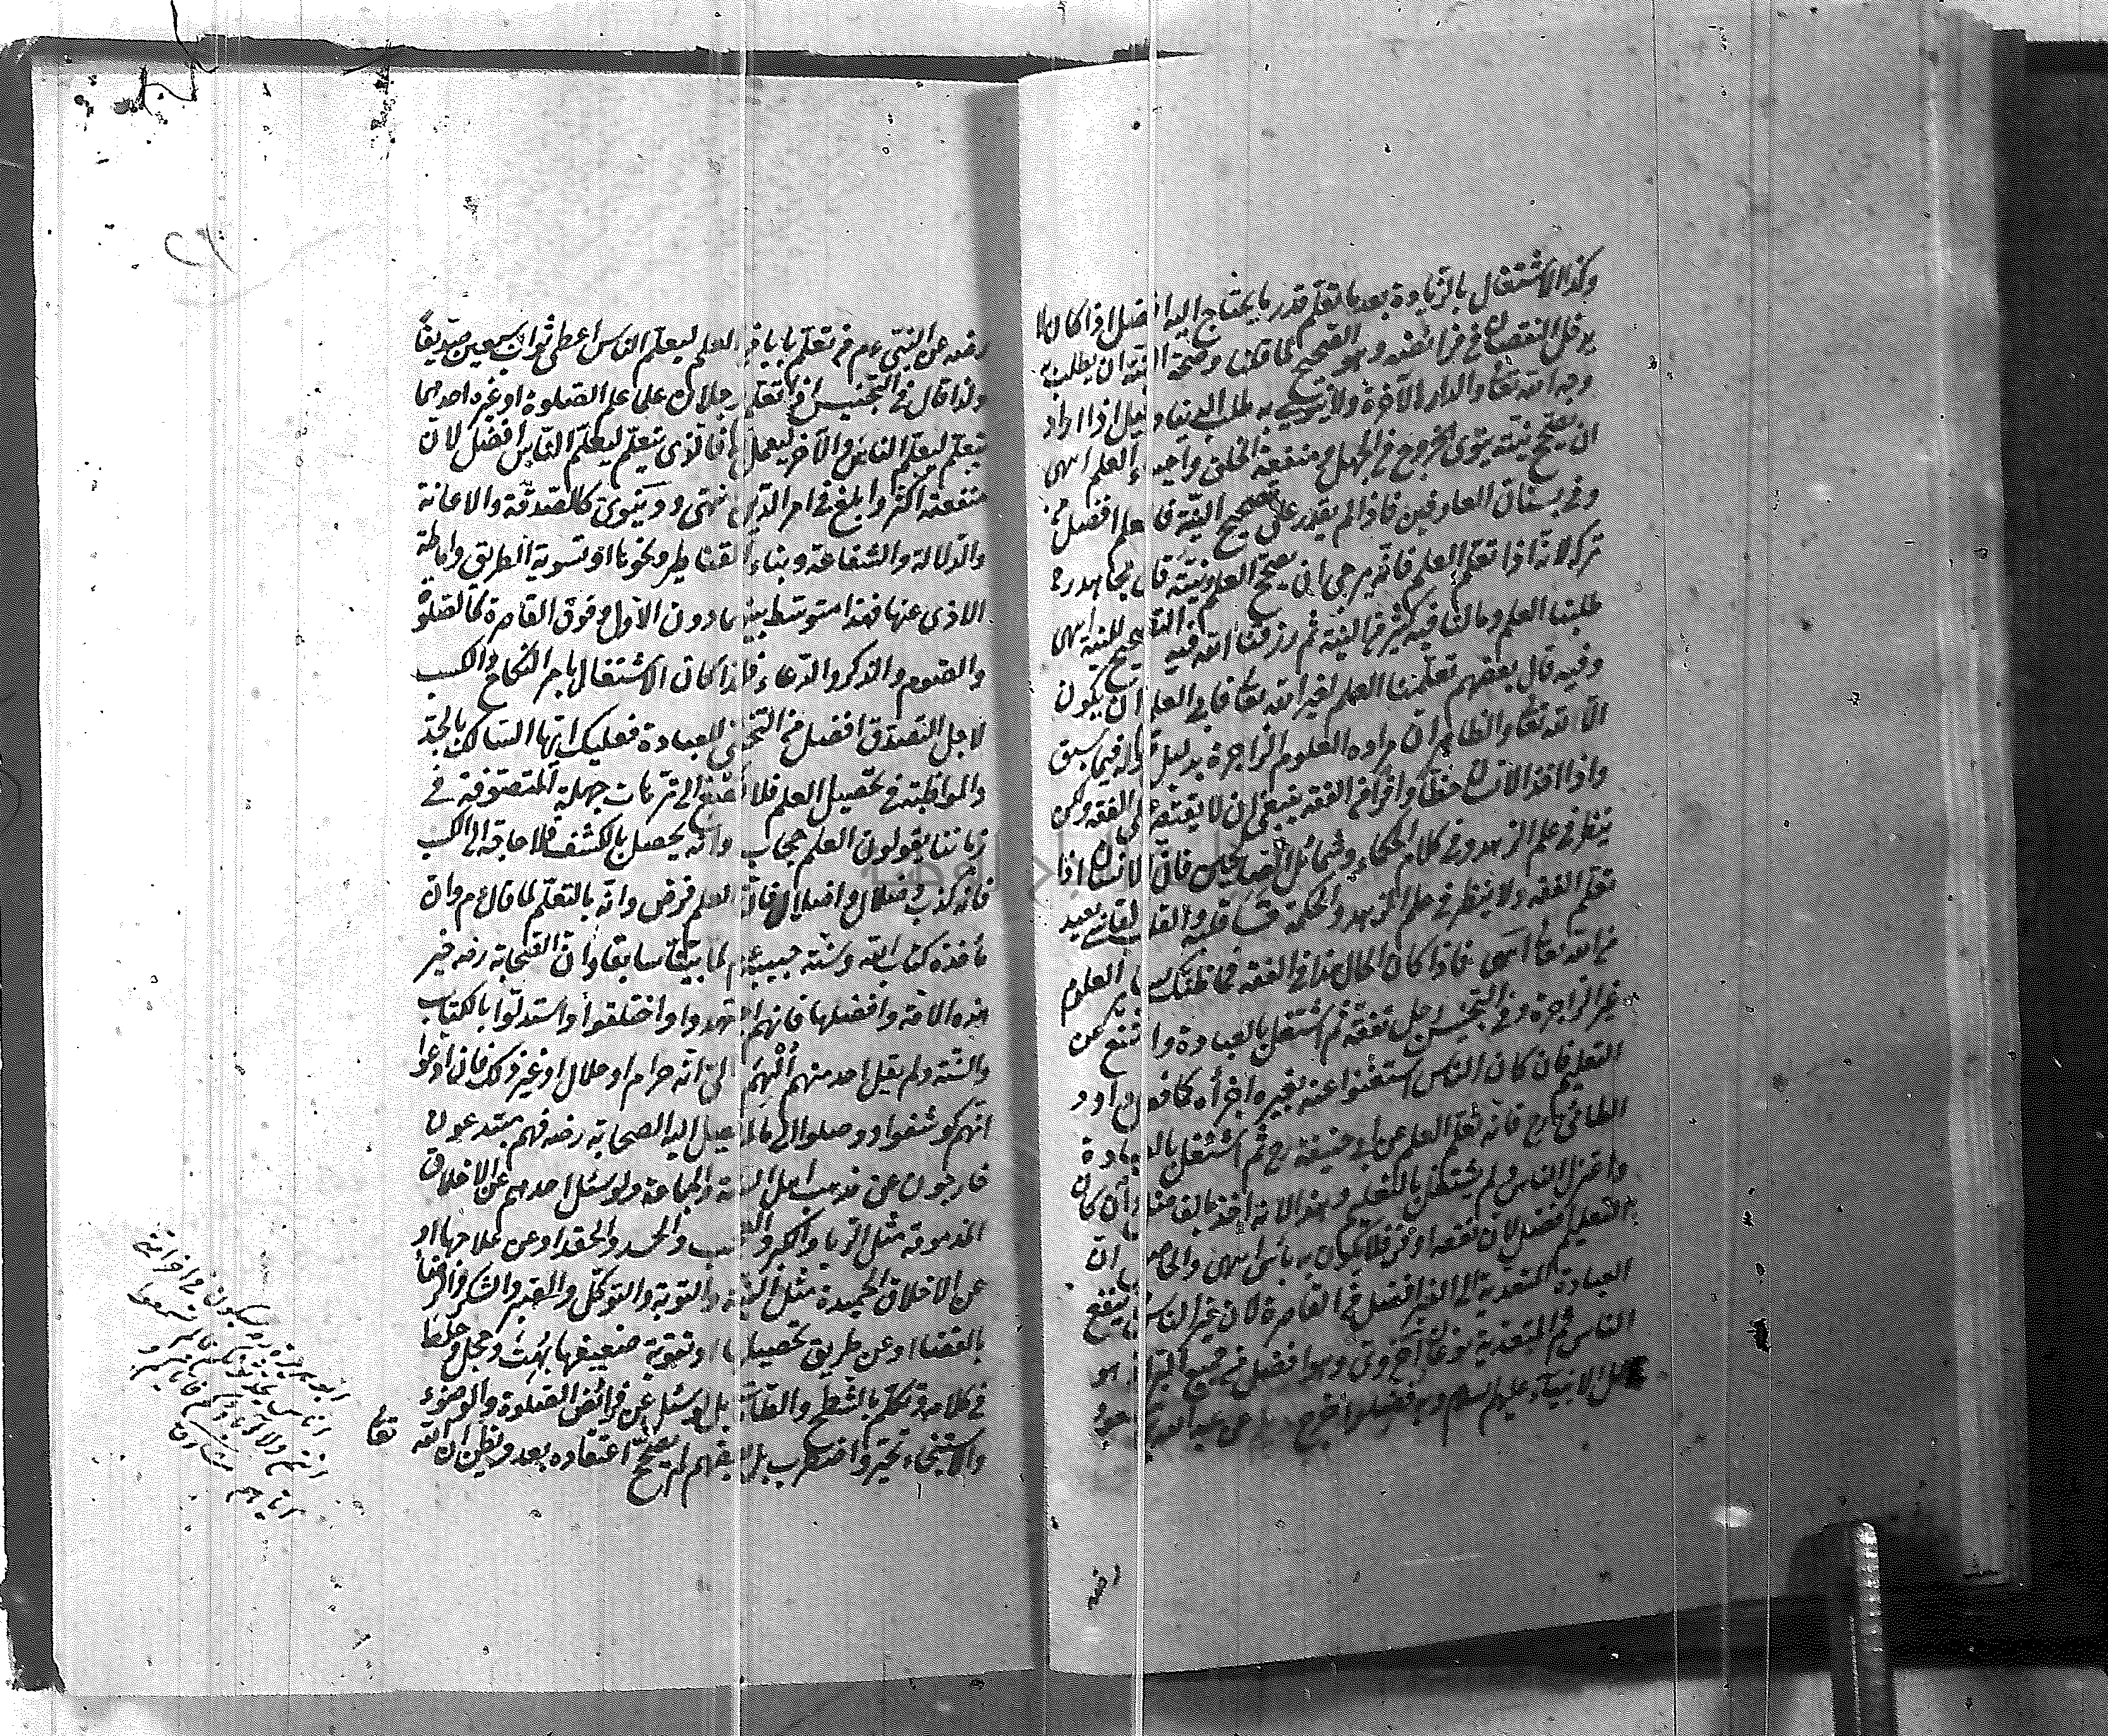 وكذا الاشتغال بالزيادة بعد ما تعلم قدر ما يحتاج اليه افضل اذا كان لا
يدخل النقصان في فرائضه وهو الصحيح لما قلنا وصحة النية ان يطلب به
وجه الله تعا والدار الآخرة ولا ينوي به طلب الدنيا وقيل اذا اراد
ان يصحح نيته ينوى الخروج من الجهل ومنفعة الخلق واحياء العلم انتهى
وفي بستان العارفين فاذا لم يقدر على تصحيح النية فالعلم افضل من
تركه لانه اذا تعلم العلم فانه يرجى ان يصحح العلم نيته قال مجاهد رح
طلبنا العلم وما لنا فيه كثير من النية ثم رزقنا الله فيه التصحيح للنية انتهى
وفيه قال بعضهم تعلمنا العلم لغير الله تعا فابى العلم ان يكون
الا لله تعا والظاهر ان مراده العلوم الزاجرة بدليل قوله فيما سبق
واذا اخذ الانسان حظا وافرا من الفقه ينبغي ان لا يقتصر على الفقه ولكن
ينظر في علم الزهد وفي كلام الحكماء وشمائل الصالحين فان الانسان اذا
تعلم الفقه ولا ينظر في علم الزهد والحكمة قسا قلبه والقلب القاسي بعيد
من الله تعا انتهى فاذا كان الحال هذا في الفقه فما ظنك بسائر العلوم
غير الزاجرة وفي التجنيس رجل تفقه ثم اشتغل بالعبادة وامتنع عن
التعليم فان كان الناس استغنوا عنه بغيره اجزأه كما فعل داود
الطائي رح فانه تعلم العلم عن ابي حنيفة رح ثم اشتغل بالعبادة
واعتزل الناس ولم يشتغل بالتعليم وهذا لانه اخذ بالفضل وان كان
التعليم افضل لان نفعه اوفر فلا يكون به بأس انتهى والحاصل ان
العبادة المتعدية الى الغير افضل من القاصرة لان خير الناس من ينفع
الناس ثم المتعدية نوعان اخروى وهو افضل من جميع
عمل الانبياء عليهم السلام
رضه عن النبي عم من تعلم بابا من العلم ليعلم الناس اعطى ثواب سبعين صديقا
ولذا قال في التجنيس اذا تعلم رجلان علم الصلوة او غيره احدهما
يتعلم ليعلم الناس والآخر ليعمل بها فالذى يتعلم ليعلم الناس افضل لان
منفعته اكثر وابلغ في امر الدين انتهى ودنيوى كالصدقة والاعانة
والدلالة والشفاعة وبناء القناطر ونحوها او تسوية الطريق واماطة
الاذى عنها فهذا متوسط بينهما دون الاول وفوق القاصرة كالصلوة
والصوم والذكر والدعاء فلذا كان الاشتغال بامر النكاح والكسب
لاجل التصدق افضل من التخلي للعبادة فعليك ايها السالك بالجد
والمواظبة في تحصيل العلم فلا تصغ الى ترهات جهلة المتصوفة في
زماننا يقولون العلم حجاب وانه يحصل بالكشف فلا حاجة الى الكسب
فانه كذب وضلال واضلال فان العلم فرض وانه بالتعلم لما قال عم وان
مأخذه كتاب الله وسنة حبيبه عم لما بينا سابقا وان الصحابة رضه خير
هذه الامة وافضلها فانهم اجتهدوا واختلفوا واستدلوا بالكتاب
والسنة ولم يقل احد منهم أُلهِم الي انه حرام او حلال او غير ذلك فان ادعوا
انهم كوشفوا ووصلوا الى ما لم يصل اليه الصحابة رضه فهم مبتدعون
خارجون عن مذهب اهل السنة والجماعة ولو سئل احدهم عن الاخلاق
المذمومة مثل الريا والكبر والعجب والحسد والحقد او عن علاجها او
عن الاخلاق الحميدة مثل النية والتوبة والتوكل والصبر والشكر والرضا
بالقضا او عن طريق تحصيلها او تقوية ضعيفها بُهت وخجل وخلط
في كلامه وتكلم بالشطح والطامات بل لو سئل عن فرائض الصلوة والوضوء
والاستنجاء تحير واضطرب بل بعضهم لم يصحح اعتقاده بعد ويظن ان الله
تعا